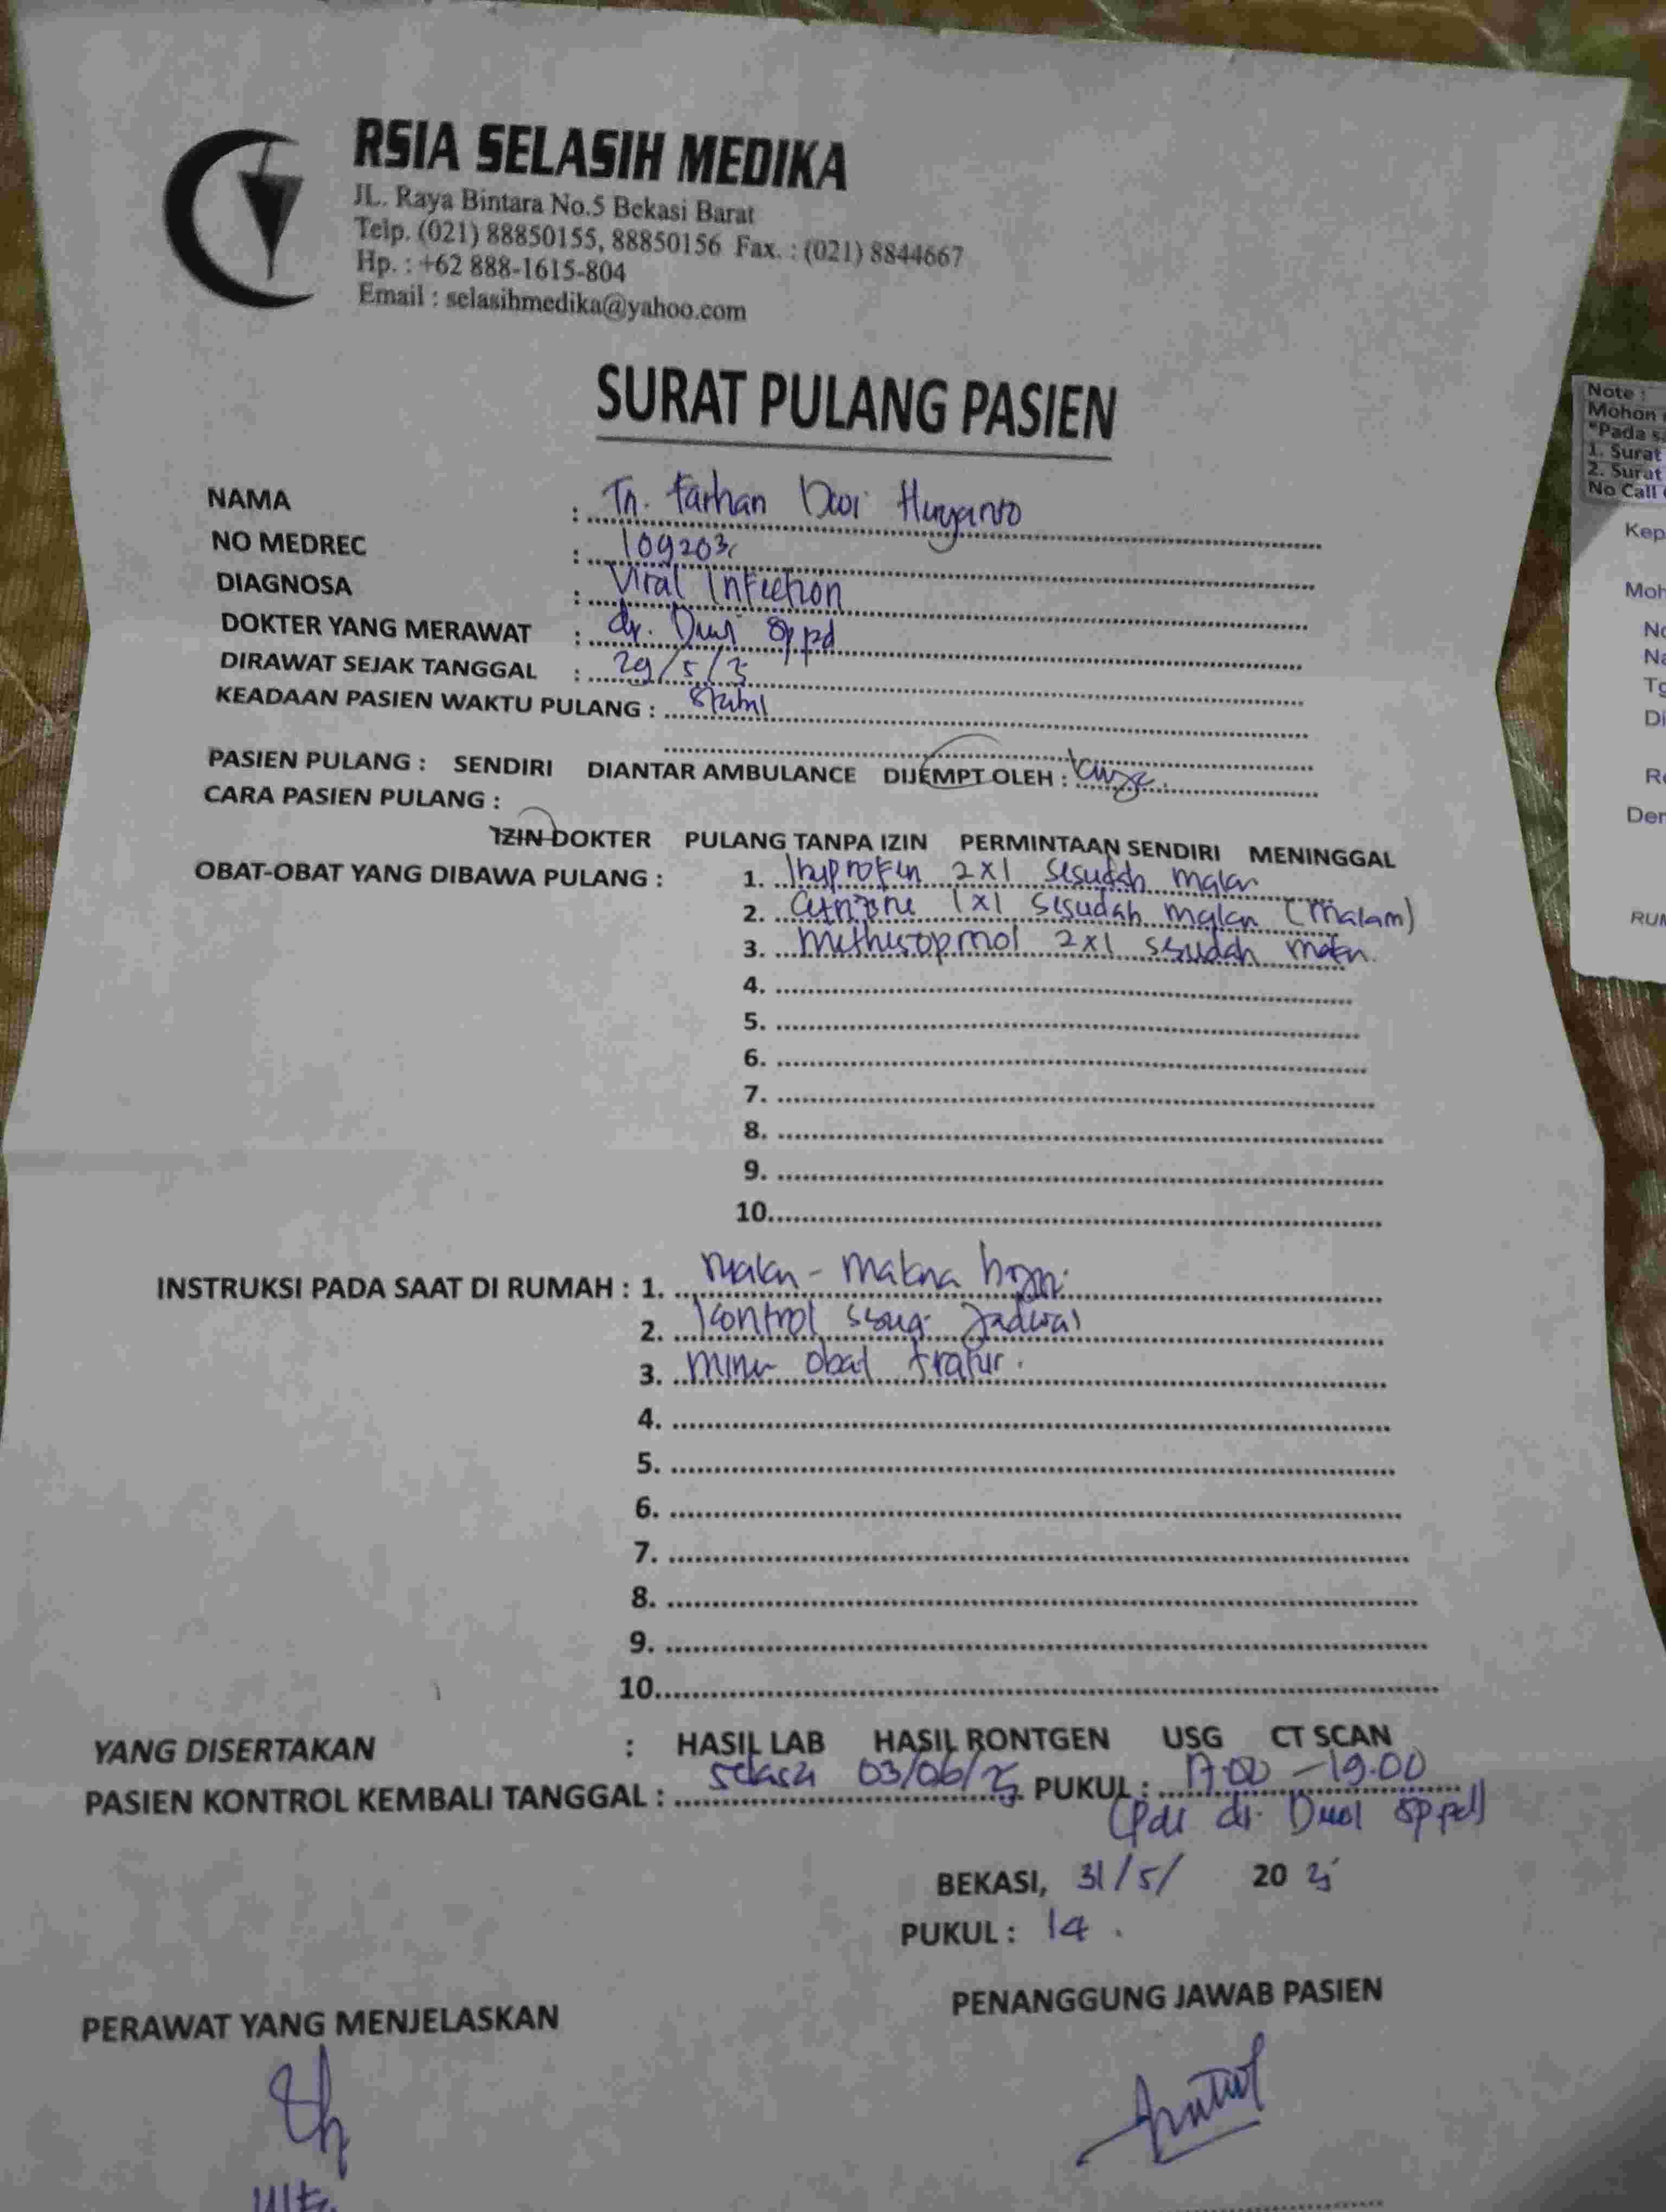 RSIA SELASIH MEDIKA
JL. Raya Bintara No.5 Bekasi Barat
Telp. (021) 88850155, 88850156 Fax. : (021) 8844667
Hp. : +62 888-1615-804
Email : selasihmedika@yahoo.com
SURAT PULANG PASIEN
NAMA : Tn. Farhan Dwi
NO MEDREC : 109203
DIAGNOSA : Viral Infection
DOKTER YANG MERAWAT : dr. Dwi Sppd
DIRAWAT SEJAK TANGGAL : 29/5/
KEADAAN PASIEN WAKTU PULANG : Stabil
PASIEN PULANG : SENDIRI DIANTAR AMBULANCE DIJEMPT OLEH :
CARA PASIEN PULANG :
IZIN DOKTER PULANG TANPA IZIN PERMINTAAN SENDIRI MENINGGAL
OBAT-OBAT YANG DIBAWA PULANG : 1. 2x1 sesudah makan
2. 1x1 sesudah makan (malam)
3. 2x1 makan.
4.
5.
6.
7.
8.
9.
10.
INSTRUKSI PADA SAAT DI RUMAH : 1.
2. kontrol Jadwal
3. obat
4.
5.
6.
7.
8.
9.
10.
YANG DISERTAKAN : HASIL LAB HASIL RONTGEN USG CT SCAN
PASIEN KONTROL KEMBALI TANGGAL : Selasa 03/06/25 PUKUL : 17.00 - 19.00
dr. Dwi Sppd)
BEKASI, 31/5/ 20 25
PUKUL : 14 .
PERAWAT YANG MENJELASKAN
PENANGGUNG JAWAB PASIEN
Note :
Mohon
*Pada
1. Surat
2. Surat
No Call
Kep
Moh
No
Na
Tg
Di
Re
Dem
RUM